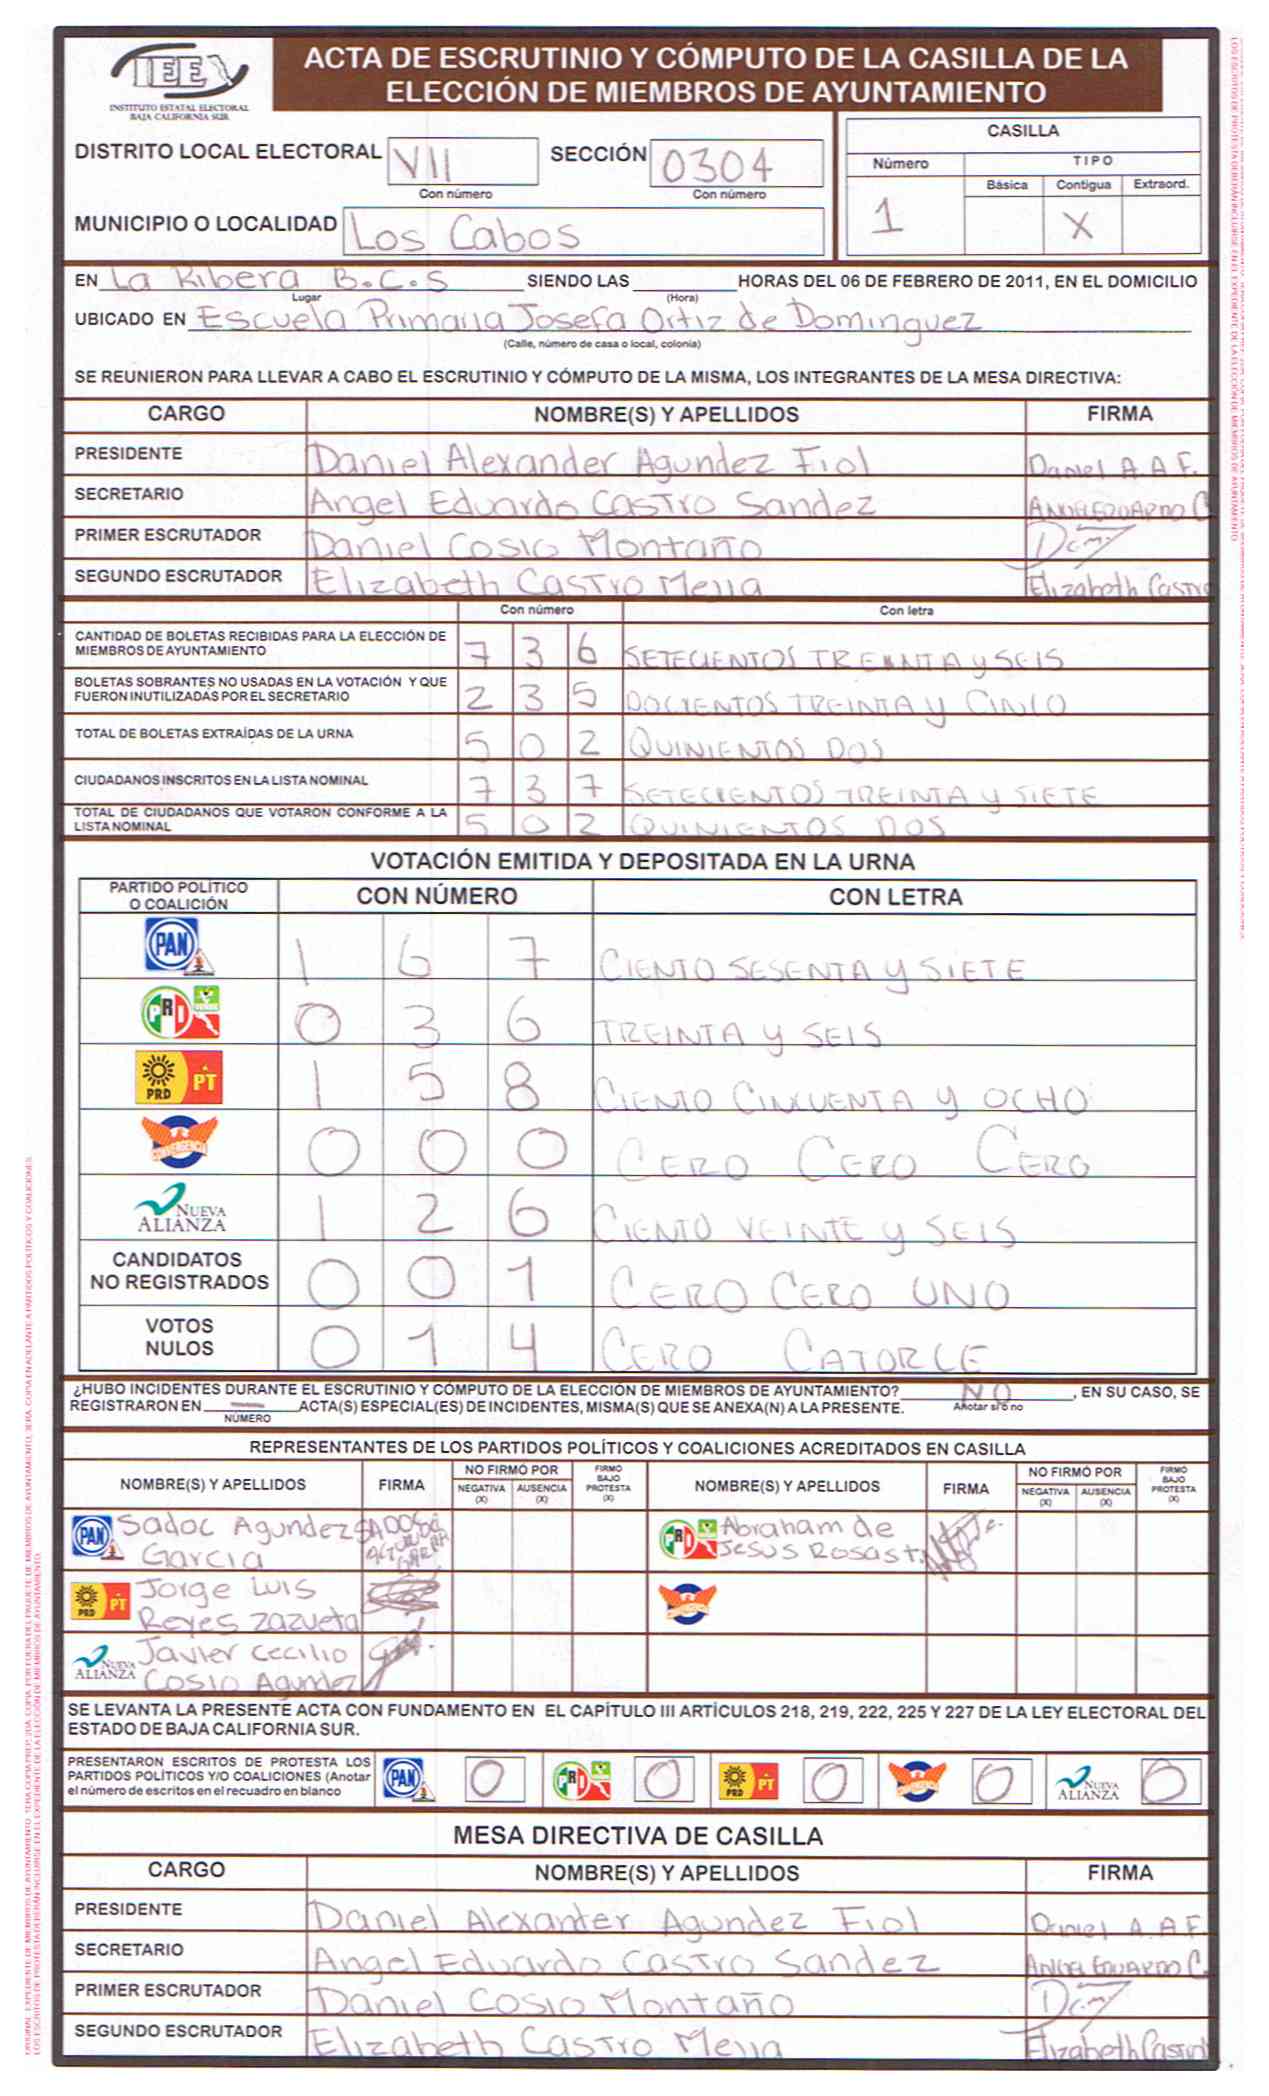 IEE
INSTITUTO ESTATAL ELECTORAL
BAJA CALIFORNIA SUR
ACTA DE ESCRUTINIO Y CÓMPUTO DE LA CASILLA DE LA
ELECCIÓN DE MIEMBROS DE AYUNTAMIENTO
DISTRITO LOCAL ELECTORAL VII SECCIÓN 0304
Con número Con número
MUNICIPIO O LOCALIDAD Los Cabos
CASILLA
Número TIPO
Básica Contigua Extraord.
1 X
EN La Ribera B.C.S SIENDO LAS HORAS DEL 06 DE FEBRERO DE 2011, EN EL DOMICILIO
Lugar (Hora)
UBICADO EN Escuela Primaria Josefa Ortiz de Dominguez
(Calle, número de casa o local, colonia)
SE REUNIERON PARA LLEVAR A CABO EL ESCRUTINIO Y CÓMPUTO DE LA MISMA, LOS INTEGRANTES DE LA MESA DIRECTIVA:
CARGO NOMBRE(S) Y APELLIDOS FIRMA
PRESIDENTE Daniel Alexander Agundez Fiol Daniel A. A F.
SECRETARIO Angel Eduardo Castro Sandez ANGEL EDUARDO C
PRIMER ESCRUTADOR Daniel Cosio Montaño
SEGUNDO ESCRUTADOR Elizabeth Castro Mejia Elizabeth Castro
Con número Con letra
CANTIDAD DE BOLETAS RECIBIDAS PARA LA ELECCIÓN DE
MIEMBROS DE AYUNTAMIENTO 7 3 6 SETECIENTOS TREINTA y SEIS
BOLETAS SOBRANTES NO USADAS EN LA VOTACIÓN Y QUE
FUERON INUTILIZADAS POR EL SECRETARIO 2 3 5 DOCIENTOS TREINTA y CINCO
TOTAL DE BOLETAS EXTRAÍDAS DE LA URNA 5 0 2 QUINIENTOS DOS
CIUDADANOS INSCRITOS EN LA LISTA NOMINAL 7 3 7 SETECIENTOS TREINTA y SIETE
TOTAL DE CIUDADANOS QUE VOTARON CONFORME A LA
LISTA NOMINAL 5 0 2 QUINIENTOS DOS
VOTACIÓN EMITIDA Y DEPOSITADA EN LA URNA
PARTIDO POLÍTICO
O COALICIÓN CON NÚMERO CON LETRA
PAN 1 6 7 CIENTO SESENTA y SIETE
PRI VERDE 0 3 6 TREINTA y SEIS
PRD PT 1 5 8 CIENTO CINCUENTA y OCHO
CONVERGENCIA 0 0 0 CERO CERO CERO
NUEVA ALIANZA 1 2 6 CIENTO VEINTE y SEIS
CANDIDATOS
NO REGISTRADOS 0 0 1 CERO CERO UNO
VOTOS
NULOS 0 1 4 CERO CATORCE
¿HUBO INCIDENTES DURANTE EL ESCRUTINIO Y CÓMPUTO DE LA ELECCIÓN DE MIEMBROS DE AYUNTAMIENTO? NO , EN SU CASO, SE
REGISTRARON EN — ACTA(S) ESPECIAL(ES) DE INCIDENTES, MISMA(S) QUE SE ANEXA(N) A LA PRESENTE. Anotar sí o no
NÚMERO
REPRESENTANTES DE LOS PARTIDOS POLÍTICOS Y COALICIONES ACREDITADOS EN CASILLA
NOMBRE(S) Y APELLIDOS FIRMA NO FIRMÓ POR NEGATIVA (X) AUSENCIA (X) FIRMO BAJO PROTESTA (X) NOMBRE(S) Y APELLIDOS FIRMA NO FIRMÓ POR NEGATIVA (X) AUSENCIA (X) FIRMO BAJO PROTESTA (X)
PAN Sadoc Agundez PRI VERDE Abraham de
Garcia Jesus Rosas T.
PRD PT Jorge Luis CONVERGENCIA
Reyes Zazueta
NUEVA ALIANZA Javier Cecilio
Cosio Agundez
SE LEVANTA LA PRESENTE ACTA CON FUNDAMENTO EN EL CAPÍTULO III ARTÍCULOS 218, 219, 222, 225 Y 227 DE LA LEY ELECTORAL DEL
ESTADO DE BAJA CALIFORNIA SUR.
PRESENTARON ESCRITOS DE PROTESTA LOS
PARTIDOS POLÍTICOS Y/O COALICIONES (Anotar
el número de escritos en el recuadro en blanco
PAN 0 PRI VERDE 0 PRD PT 0 CONVERGENCIA 0 NUEVA ALIANZA 0
MESA DIRECTIVA DE CASILLA
CARGO NOMBRE(S) Y APELLIDOS FIRMA
PRESIDENTE Daniel Alexanter Agundez Fiol Daniel A. A F.
SECRETARIO Angel Eduardo Castro Sandez ANGEL EDUARDO C.
PRIMER ESCRUTADOR Daniel Cosio Montaño
SEGUNDO ESCRUTADOR Elizabeth Castro Mejia Elizabeth Castro